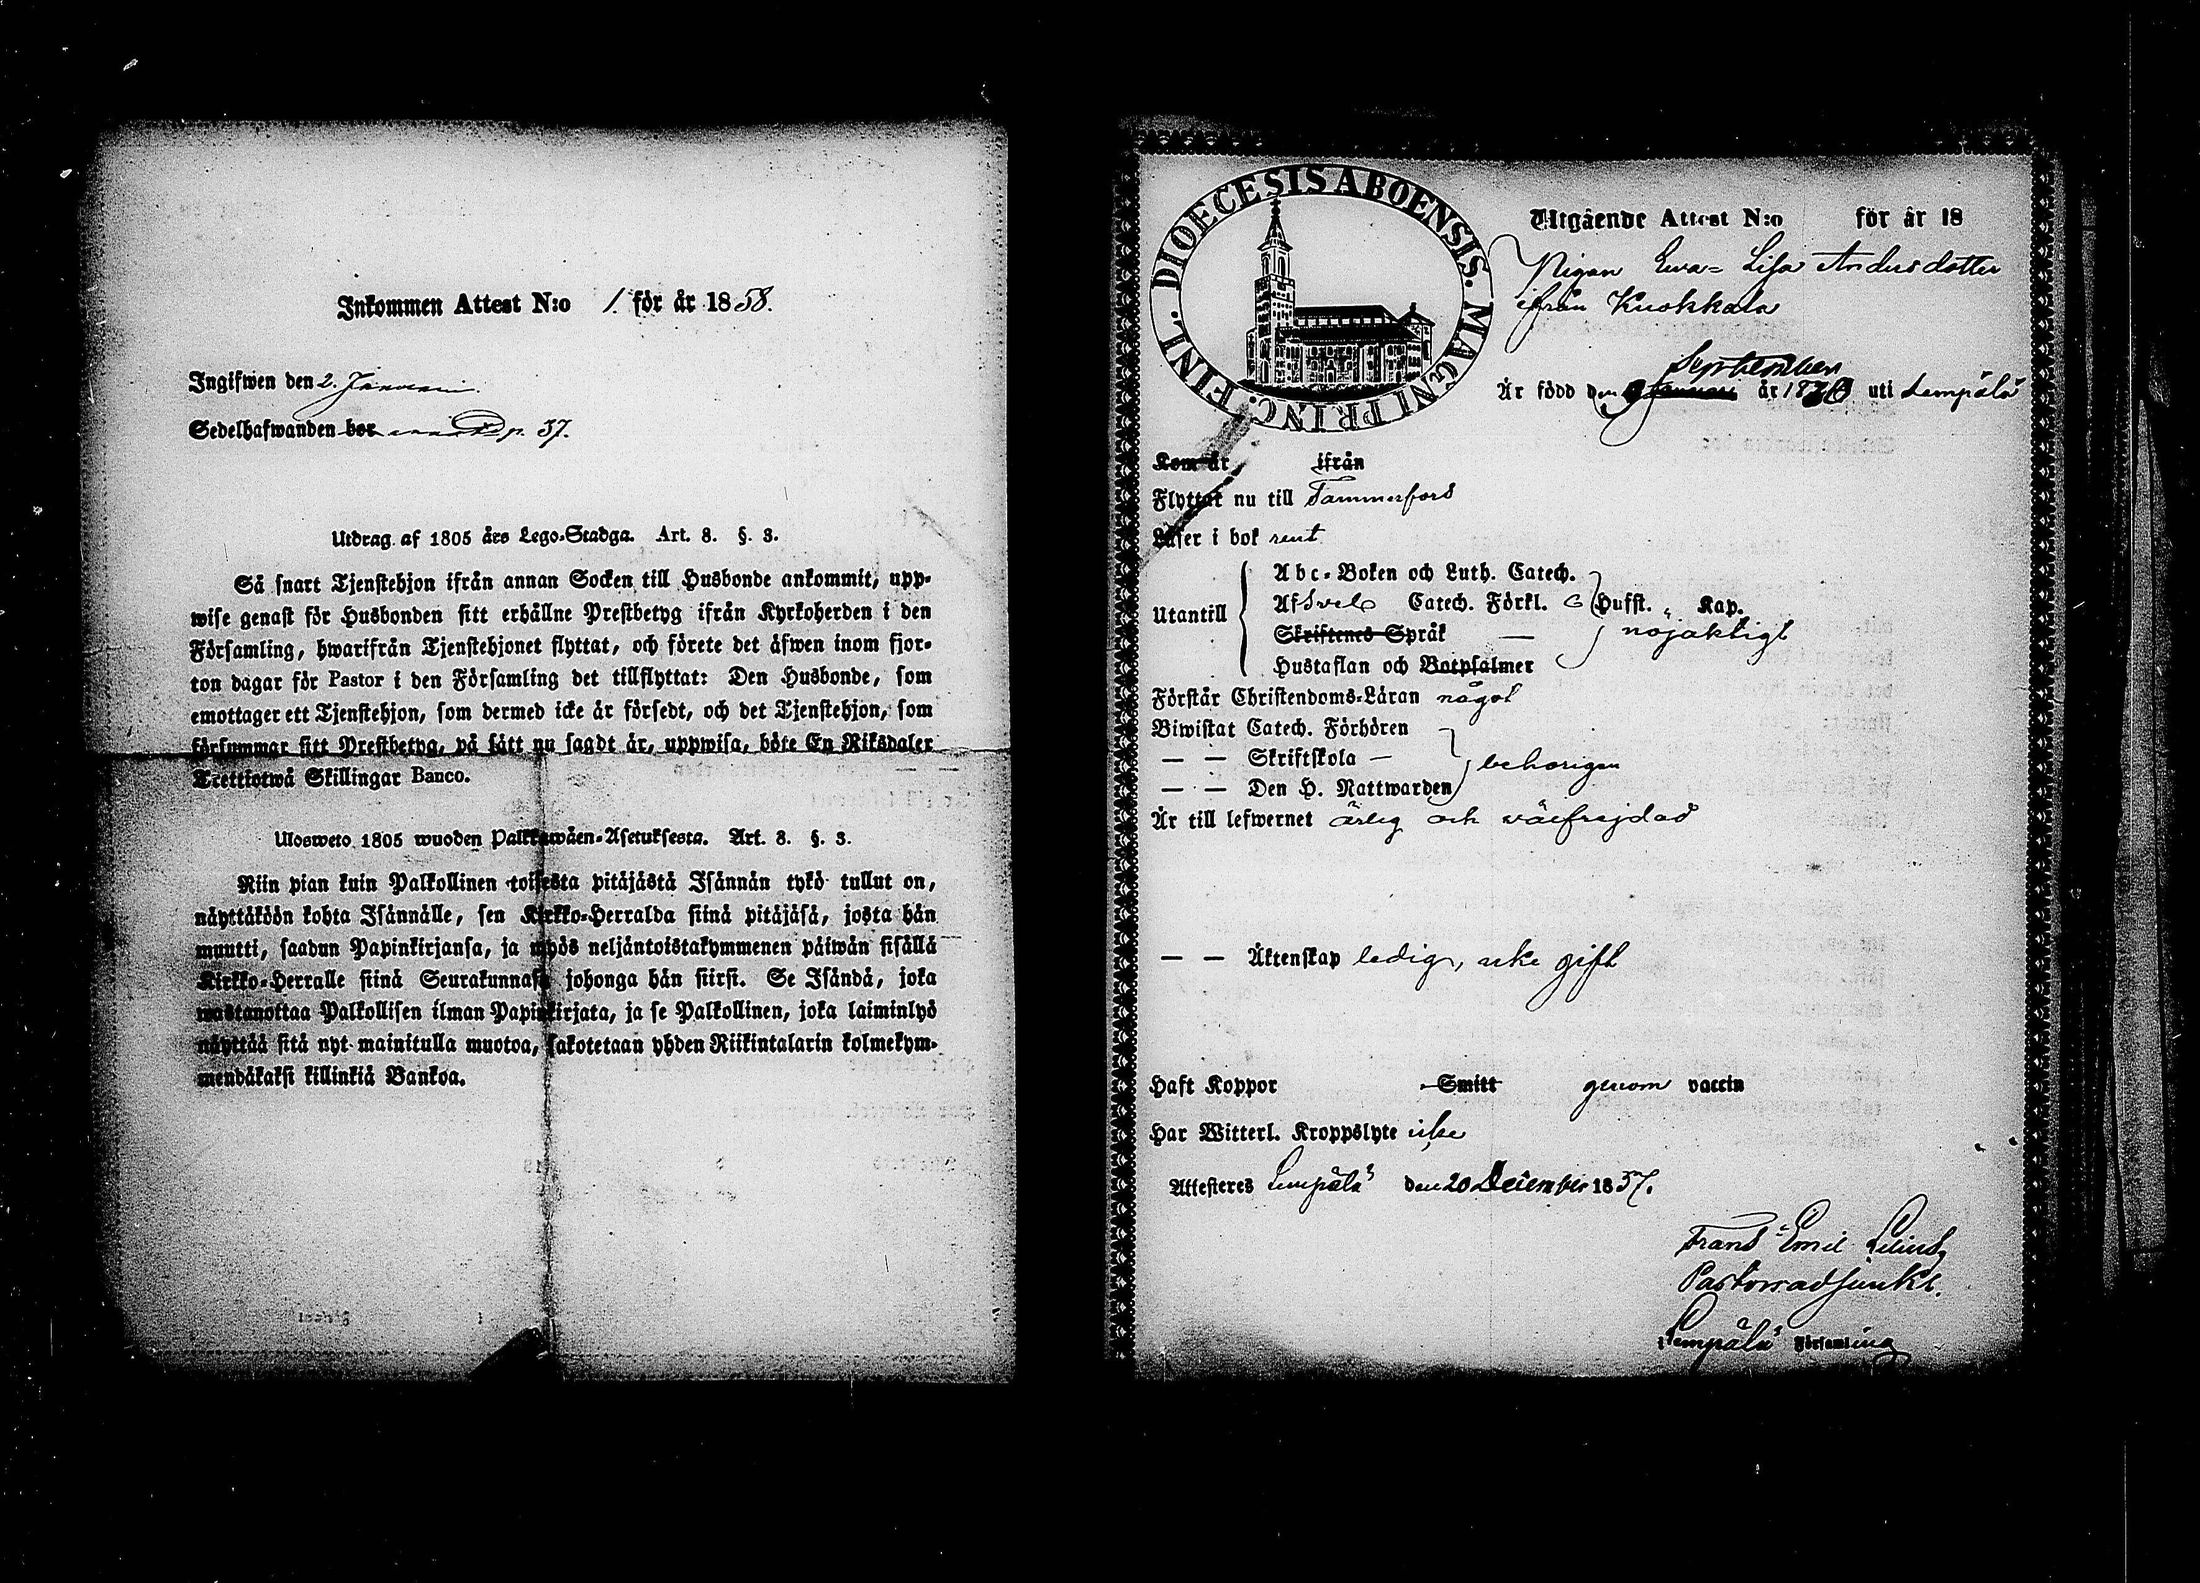 Inkommen Attest N:o 1. för år 1858.
Ingifwen den 2. Januari
Sedelhafwanden bor p. 37.
Utdrag af 1805 års Lego-Stadga. Art. 8. §. 3.
Så snart Tjenstehjon ifrån annan Socken till Husbonde ankommit, upp-
wise genast för Husbonden sitt erhållne Prestbetyg ifrån Kyrkoherden i den
Församling, hwarifrån Tjenstehjonet flyttat, och förete det äfwen inom fjor-
ton dagar för Pastor i den Församling det tillflyttat: Den Husbonde, som
emottager ett Tjenstehjon, som dermed icke är försedt, och det Tjenstehjon, som
försummar sitt Prestbetyg, på sätt nu sagdt är, uppwisa, böte En Riksdaler
Trettiotwå Skillingar Banco.
Ulosweto 1805 wuoden Palkkawäen-Asetuksesta. Art. 8. §. 3.
Niin pian kuin Palkollinen toisesta pitäjästä Isännän tykö tullut on,
näyttäköön kohta Isännälle, sen Kirkko-Herralda siinä pitäjäsä, josta hän
muutti, saadun Papinkirjansa, ja myös neljäntoistakymmenen päiwän sisällä
Kirkko-Herralle siinä Seurakunnasa johonga hän siirsi. Se Isändä, joka
wastanottaa Palkollisen ilman Papinkirjata, ja se Palkollinen, joka laiminlyö
näyttää sitä nyt mainitulla muotoa, sakotetaan yhden Riikintalarin kolmekym-
mendäkaksi killinkiä Bankoa.
DIOECESIS ABOENSIS. MAGNI PRINC. FINL.
Utgående Attest N:o för år 18
Pigan Ewa Lisa Andersdotter
ifrån Kuokkala
September
Är född den 9 Januari år 1830 uti Lempälä
Kom år ifrån
Flyttat nu till Tammerfors
Läser i bok rent
Utantill
Abc-Boken och Luth. Catech.
Af Svel. Catech. Förkl. Hufst. Kap.
Skriftenes Språk — nöjaktigt
Hustaflan och Botpsalmer
Förstår Christendoms-Läran något
Biwistat Catech. Förhören
— — Skriftskola — behörigen
— — Den H. Nattwarden
Är till lefwernet ärlig och välfrejdad
— — Äktenskap ledig, icke gift
Haft Koppor Smitt genom vaccin
Har Witterl. Kroppslyte icke
Attesteres Lempälä den 20 December 1857.
Frans Emil Lilius
Pastorsadjunkt.
Lempälä Församling